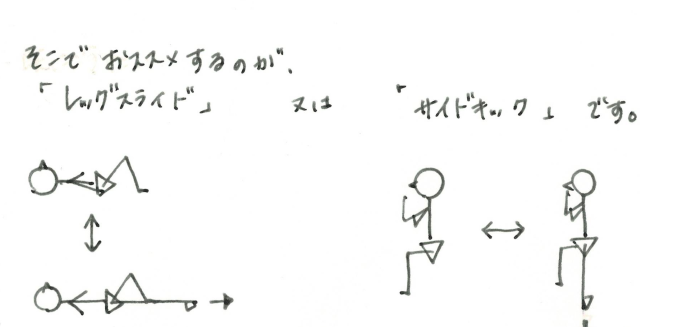 そこでおススメするのが、
「レッグスライド」 又は 「サイドキック」 です。